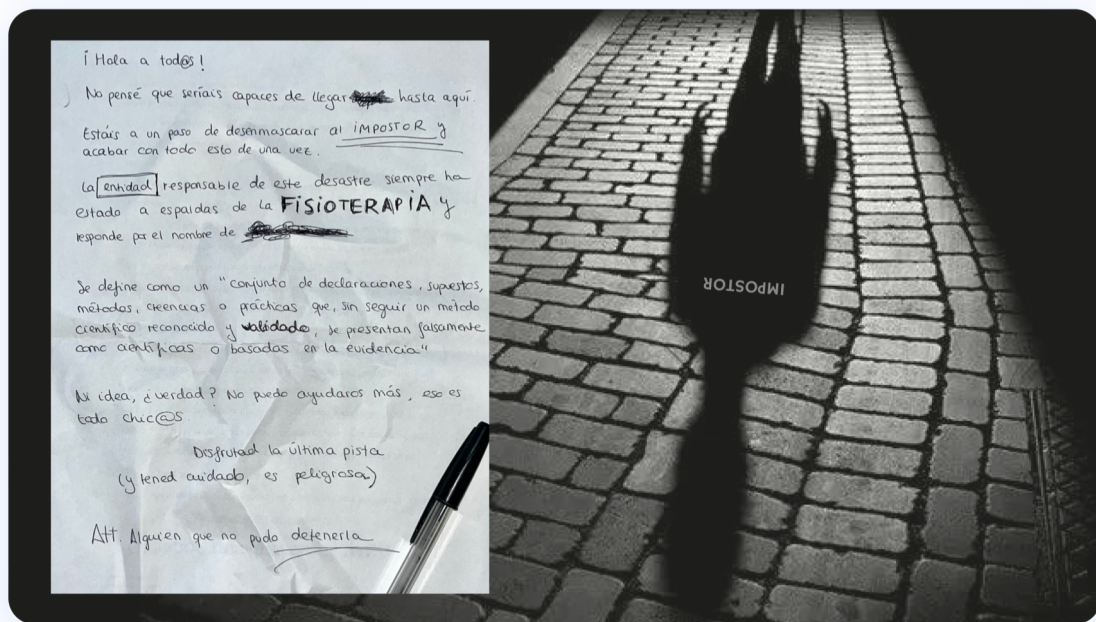 ¡Hola a tod@s!
No pensé que seríais capaces de llegar hasta aquí.
Estáis a un paso de desenmascarar al IMPOSTOR y
acabar con todo esto de una vez.
La entidad responsable de este desastre siempre ha
estado a espaldas de la FISIOTERAPIA y
responde por el nombre de
Se define como un "conjunto de declaraciones, supuestos,
métodos, creencias o prácticas que, sin seguir un método
científico reconocido y validado, se presentan falsamente
como científicas o basadas en la evidencia"
Ni idea, ¿verdad? No puedo ayudaros más, eso es
todo chic@s
Disfrutad la última pista
(y tened cuidado, es peligrosa)
Att. Alguien que no pudo detenerla
IMPOSTOR